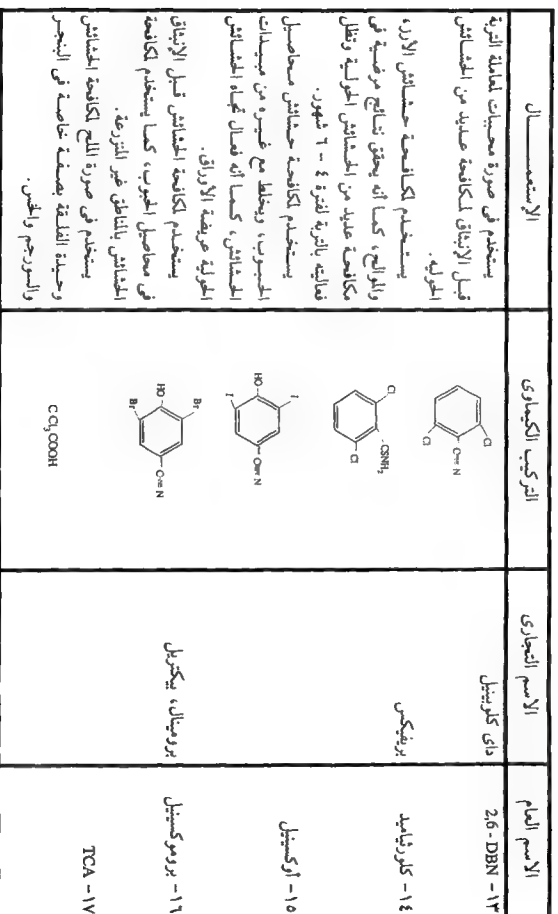 الاسم العام
الاسم التجارى
التركيب الكيماوى
الإستعمـــــال
١٣- 2,6 - DBN
داى كلوبينيل
Cl
C≡N
Cl
يستخدم فى صورة محببات لمعاملة التربة
قبل الإنبثاق لمكافحة عديد من الحشائش
الحوليه.
١٤- كلورثياميد
بريفيكس
Cl
CSNH₂
Cl
يستخدم لمكافحة حشائش الأرز،
والموالح، كما أنه يحقق نتائج مرضية فى
مكافحة عديد من الحشائش الحولية وتظل
فعاليته بالتربة لفترة ٤ - ٦ شهور.
١٥- أوكسينيل
I
HO
I
C≡N
يستخدم لمكافحة حشائش محاصيل
الحبوب، ويخلط مع غيره من مبيدات
الحشائش، كما أنه فعال تجاه الحشائش
الحولية عريضة الأوراق.
١٦- بروموكسينيل
برومينال، بيكتريل
Br
HO
Br
C≡N
يستخدم لمكافحة الحشائش قبل الانبثاق
فى محاصيل الحبوب، كما يستخدم لمكافحة
الحشائش بالمناطق غير المنزرعة.
١٧- TCA
C Cl₃ COOH
يستخدم فى صورة الملح لمكافحة الحشائش
وحيدة الفلقة بصفة خاصة فى البنجر
والسورجم والخس.